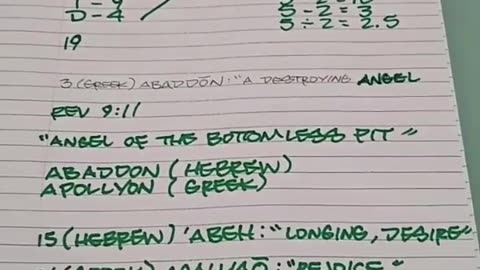 D - 4
5 - 2 = 3
5 ÷ 2 = 2.5
19
3 (GREEK) ABADDŌN: "A DESTROYING ANGEL
REV 9:11
"ANGEL OF THE BOTTOMLESS PIT"
ABADDON (HEBREW)
APOLLYON (GREEK)
15 (HEBREW) 'ABEH: "LONGING, DESIRE"
(GREEK) "REJOICE"